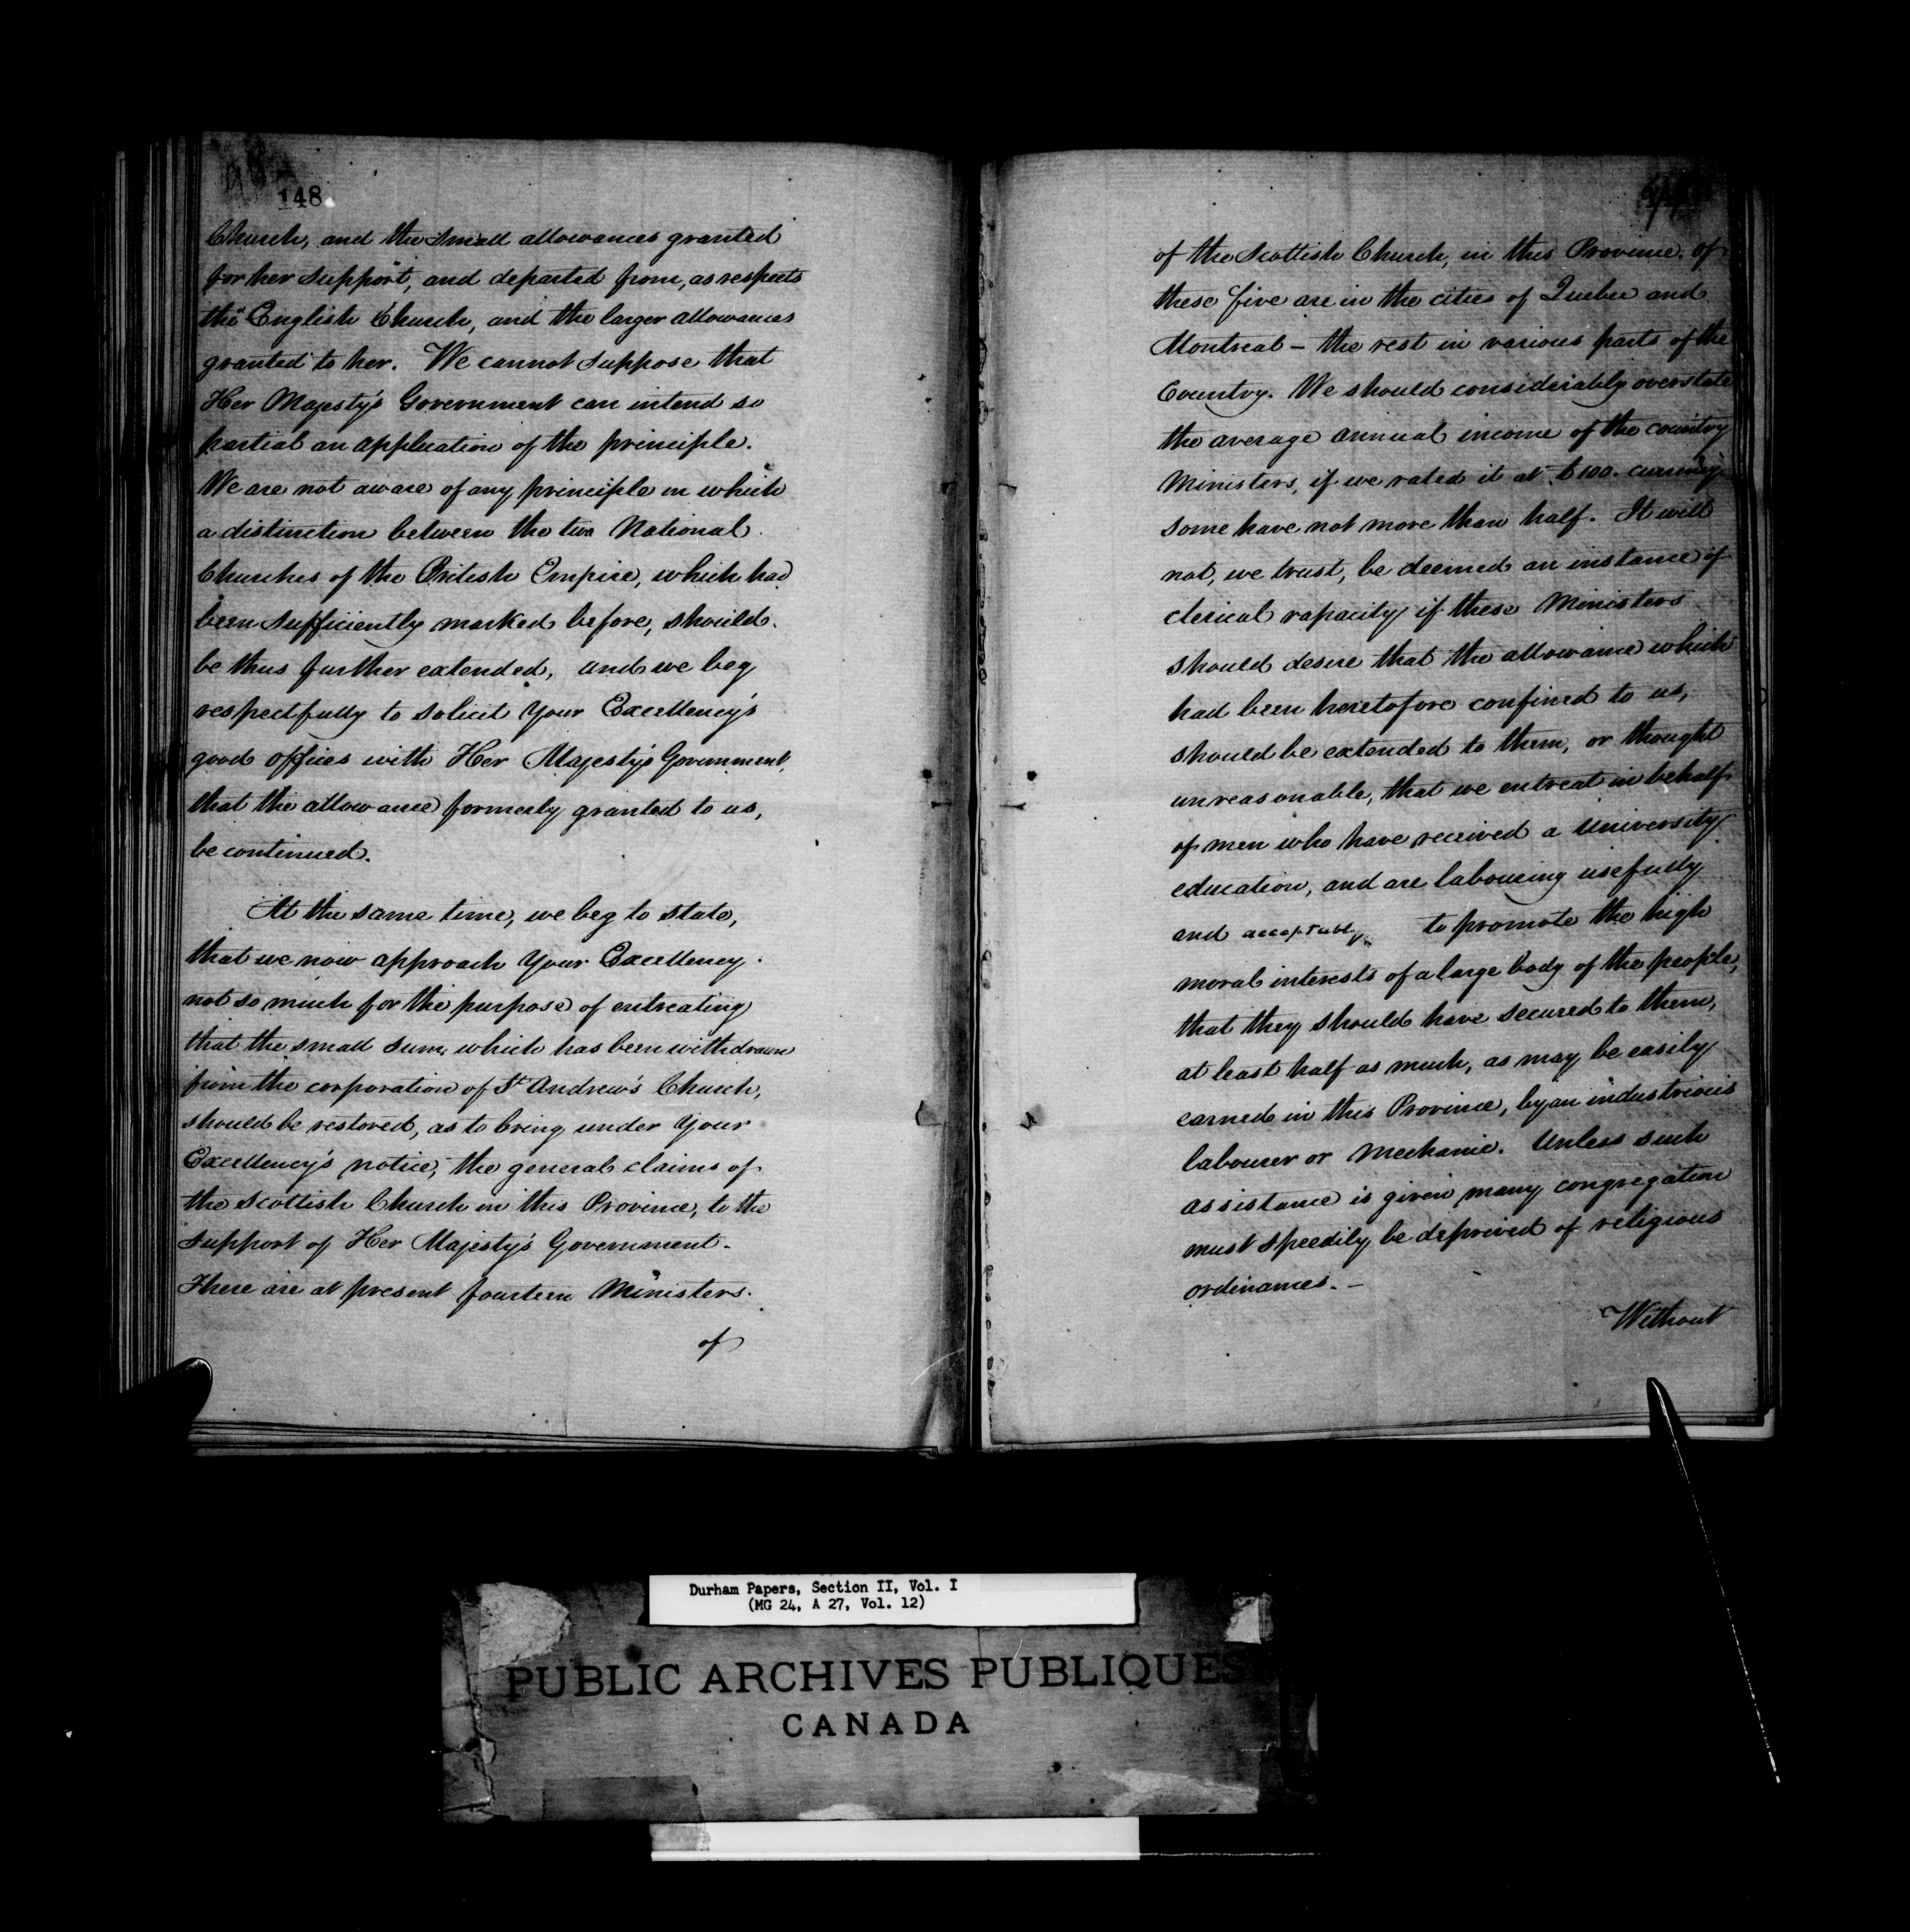 148
Church, and the small allowances granted
for her support, and departed from, as respects
the English Church, and the larger allowances
granted to her. We cannot suppose that
Her Majesty's Government can intend so
partial an application of the principle.
We are not aware of any principle on which
a distinction between the two National
Churches of the British Empire, which had
been sufficiently marked before, should
be thus further extended, and we beg
respectfully to solicit Your Excellency's
good offices with Her Majesty's Government,
that the allowance formerly granted to us,
be continued.
At the same time, we beg to state,
that we now approach Your Excellency
not so much for the purpose of entreating
that the small sum, which has been withdrawn
from the corporation of St Andrew's Church,
should be restored, as to bring under Your
Excellency's notice, the general claims of
the Scottish Church in this Province, to the
support of Her Majesty's Government.
There are at present fourteen Ministers.
of
of the Scottish Church, in this Province. of
these five are in the cities of Quebec and
Montreal – the rest in various parts of the
Country. We should considerably overstate
the average annual income of the country
Ministers, if we rated it at £100. currency
some have not more than half. It will
not, we trust, be deemed an instance of
clerical rapacity if these Ministers
should desire that the allowance which
had been heretofore confined to us,
should be extended to them, or thought
unreasonable, that we entreat in behalf
of men who have received a University
education, and are labouring usefully
and acceptably to promote the high
moral interests of a large body of the people,
that they should have secured to them,
at least half as much, as may be easily
earned in this Province, by an industrious
labourer or Mechanic. Unless such
assistance is given many congregation
must speedily be deprived of religious
ordinances. –
Without
Durham Papers, Section II, Vol. I
(MG 24, A 27, Vol. 12)
PUBLIC ARCHIVES PUBLIQUES
CANADA